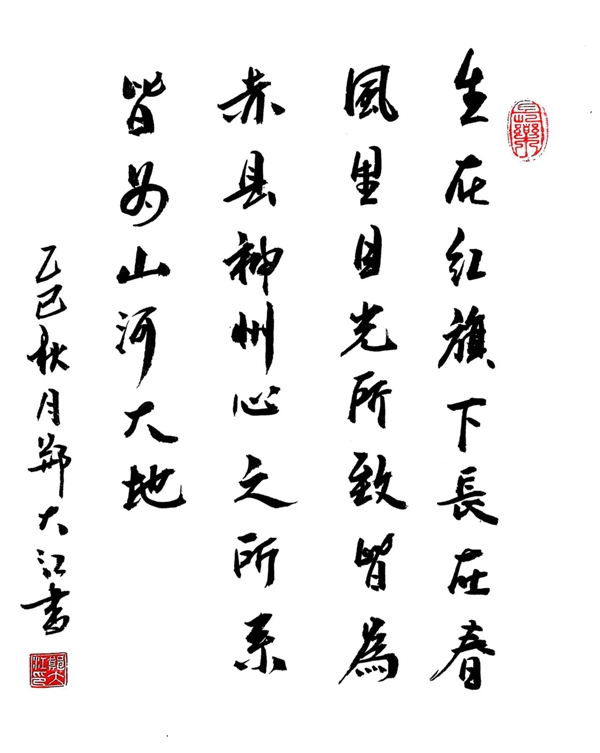 生在红旗下長在春
風里目光所致皆為
赤县神州心之所系
皆为山河大地
乙巳秋月鄭大江書
鄭大江印